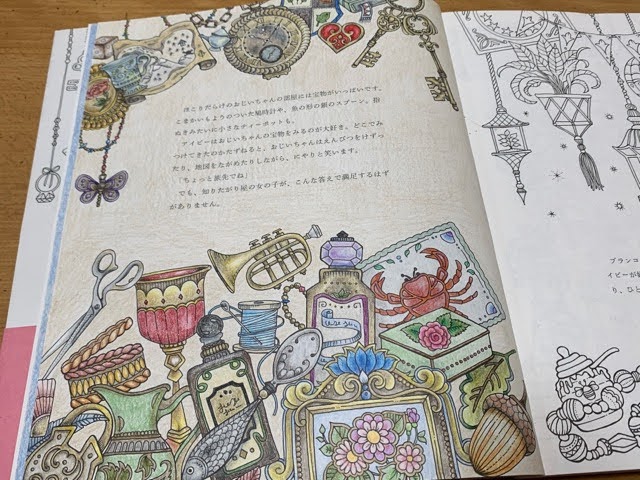 ほこりだらけのおじいちゃんの部屋には宝物がいっぱいです。
ときかいもようのついた鳩時計や、魚の形の銀のスプーン。指
ぬきみたいに小さなティーポットも。
アイビーはおじいちゃんの宝物をみるのが大好き。どこでみ
つけてきたのかたずねると、おじいちゃんはえんぴつをけずっ
たり、地図をながめたりしながら、にやりと笑います。
「ちょっと旅先でね」
でも、知りたがり屋の女の子が、こんな答えで満足するはず
がありません。
ブランコ
イビーが
り、ひと